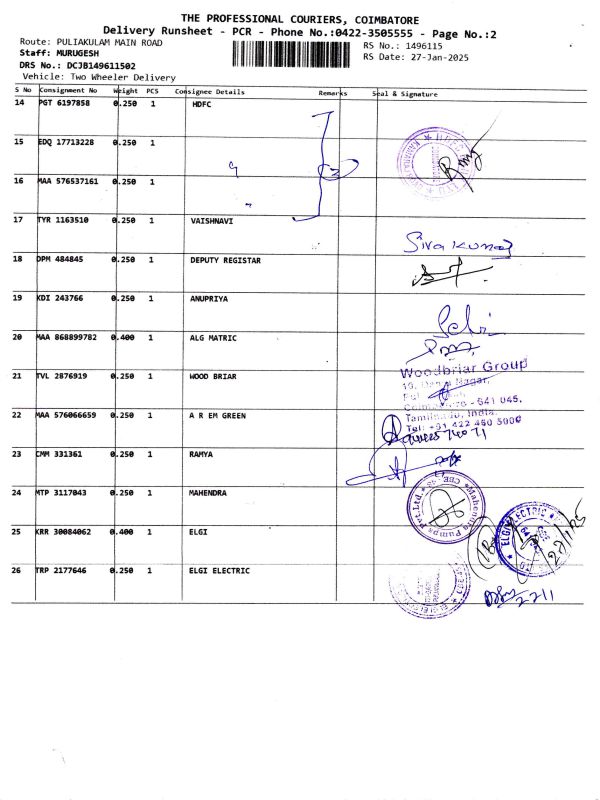 THE PROFESSIONAL COURIERS, COIMBATORE
Delivery Runsheet - PCR - Phone No.:0422-3505555 - Page No.:2
Route: PULIAKULAM MAIN ROAD RS No.: 1496115
Staff: MURUGESH RS Date: 27-Jan-2025
DRS No.: DCJB149611502
Vehicle: Two Wheeler Delivery
S No Consignment No Weight PCS Consignee Details Remarks Seal & Signature
14 PGT 6197858 0.250 1 HDFC
15 EDQ 17713228 0.250 1
16 MAA 576537161 0.250 1
17 TYR 1163510 0.250 1 VAISHNAVI
Sivakumar
18 DPM 484845 0.250 1 DEPUTY REGISTAR
19 KDI 243766 0.250 1 ANUPRIYA
Selvi
20 MAA 868899782 0.400 1 ALG MATRIC
Woodbriar Group
21 TVL 2876919 0.250 1 WOOD BRIAR
Coimbatore - 641 045.
Tamilnadu, India.
Tel: +91 422 460 5000
22 MAA 576066659 0.250 1 A R EM GREEN
23 CMM 331361 0.250 1 RAMYA
24 MTP 3117043 0.250 1 MAHENDRA
25 KRR 30084062 0.400 1 ELGI
26 TRP 2177646 0.250 1 ELGI ELECTRIC